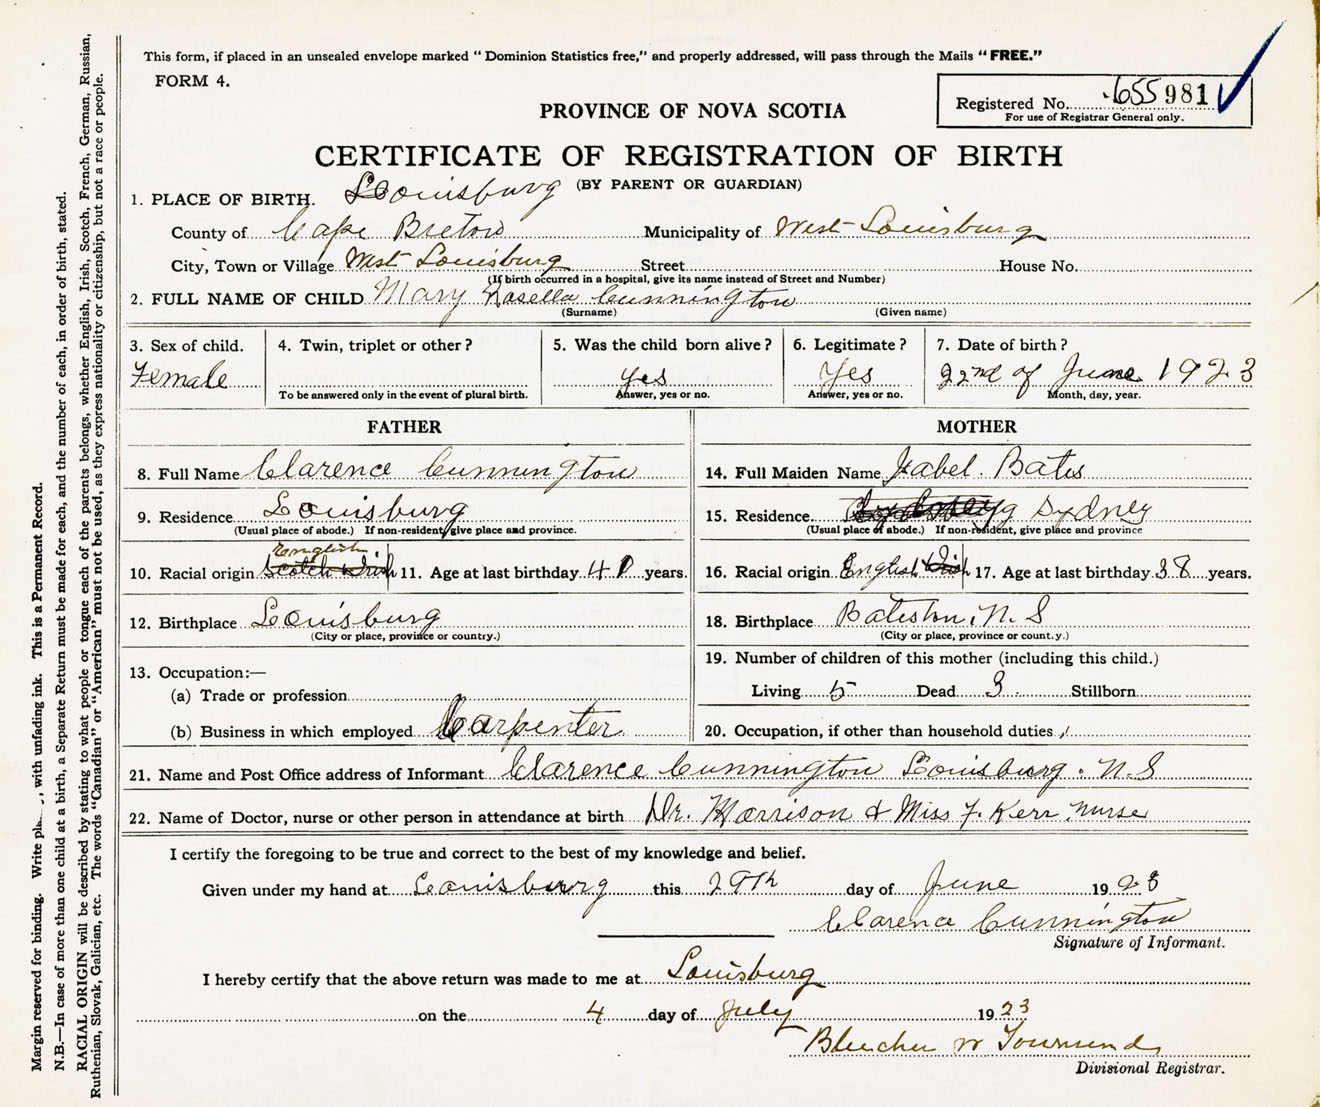 This form, if placed in an unsealed envelope marked "Dominion Statistics free," and properly addressed, will pass through the Mails "FREE."
FORM 4.
Registered No. 655981
For use of Registrar General only.
PROVINCE OF NOVA SCOTIA
CERTIFICATE OF REGISTRATION OF BIRTH
(BY PARENT OR GUARDIAN)
1. PLACE OF BIRTH. Louisburg
County of Cape Breton Municipality of West Louisburg
City, Town or Village West Louisburg Street House No.
(If birth occurred in a hospital, give its name instead of Street and Number)
2. FULL NAME OF CHILD Mary Rosella Cunnington
(Surname) (Given name)
3. Sex of child. 4. Twin, triplet or other? 5. Was the child born alive? 6. Legitimate? 7. Date of birth?
Female yes Yes 22nd of June 1923
To be answered only in the event of plural birth. Answer, yes or no. Answer, yes or no. Month, day, year.
FATHER MOTHER
8. Full Name Clarence Cunnington 14. Full Maiden Name Isabel. Bates
9. Residence Louisburg 15. Residence Sydney
(Usual place of abode.) If non-resident, give place and province. (Usual place of abode.) If non-resident, give place and province
English
10. Racial origin Scotch Irish 11. Age at last birthday 40 years. 16. Racial origin English Irish 17. Age at last birthday 38 years.
12. Birthplace Louisburg 18. Birthplace Bateston, N.S
(City or place, province or country.) (City or place, province or country.)
13. Occupation:— 19. Number of children of this mother (including this child.)
(a) Trade or profession Living 5 Dead 3 Stillborn
(b) Business in which employed Carpenter 20. Occupation, if other than household duties
21. Name and Post Office address of Informant Clarence Cunnington Louisburg. N.S
22. Name of Doctor, nurse or other person in attendance at birth Dr. Morrison & Miss F. Kerr Nurse
I certify the foregoing to be true and correct to the best of my knowledge and belief.
Given under my hand at Louisburg this 29th day of June 1923
Clarence Cunnington
Signature of Informant.
I hereby certify that the above return was made to me at Louisburg
on the 4 day of July 1923
W Townsend
Divisional Registrar.
Margin reserved for binding. Write with unfading ink. This is a Permanent Record.
N.B.—In case of more than one child at a birth, a Separate Return must be made for each, and the number of each, in order of birth, stated.
RACIAL ORIGIN will be described by stating to what people or tongue each of the parents belongs, whether English, Irish, Scotch, French, German, Russian,
Ruthenian, Slovak, Galician, etc. The words "Canadian" or "American" must not be used, as they express nationality or citizenship, but not a race or people.